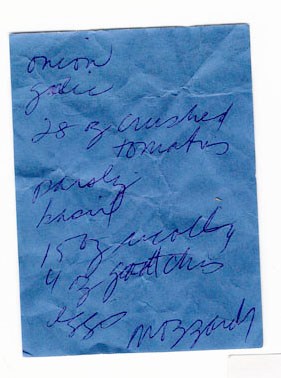 onion
garlic
28 oz crushed
tomatoes
parsley
basil
15 oz ricotta
4 oz goat chs
eggs
mozzarella